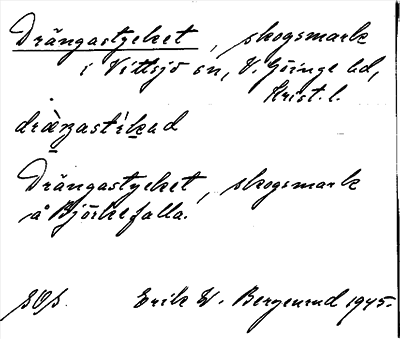 Drängastycket, skogsmark
i Vittsjö sn, V. Göinge hd,
Krist. l.
Drängastycket, skogsmark
å Björkefalla.
Erik W. Bergenrud 1945.